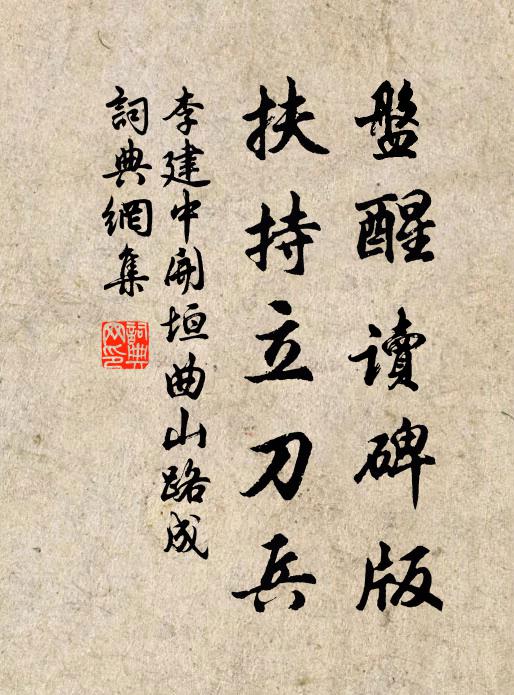 盤醒讀碑版
扶持立刀兵
李建中開垣曲山路成
詞典網集
詞典網印